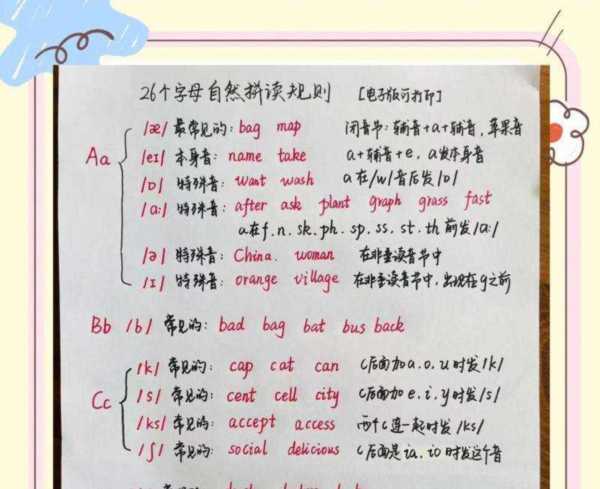 26个字母自然拼读规则 [电子版可打印]
/æ/ 最常见的: bag map 闭音节: 辅音+a+辅音, 苹果音
Aa /eɪ/ 本身音: name take a+辅音+e, a发本身音
/ɒ/ 特殊音: want wash a在/w/音后发/ɒ/
/ɑ:/ 特殊音: after ask plant graph grass fast
a在f.n.sk.ph.sp.ss.st.th前发/ɑ:/
/ə/ 特殊音: China. woman 在非重读音节中
/ɪ/ 特殊音: orange village 在非重读音节中,出现在g之前
Bb /b/ 常见的: bad bag bat bus back
/k/ 常见的: cap cat can c后面加a.o.u时发/k/
Cc /s/ 常见的: cent cell city c后面加e.i.y时发/s/
/ks/ 常见的: accept access 两个c连一起时发/ks/
/ʃ/ 常见的: social delicious c后面是ia.io时发这个音